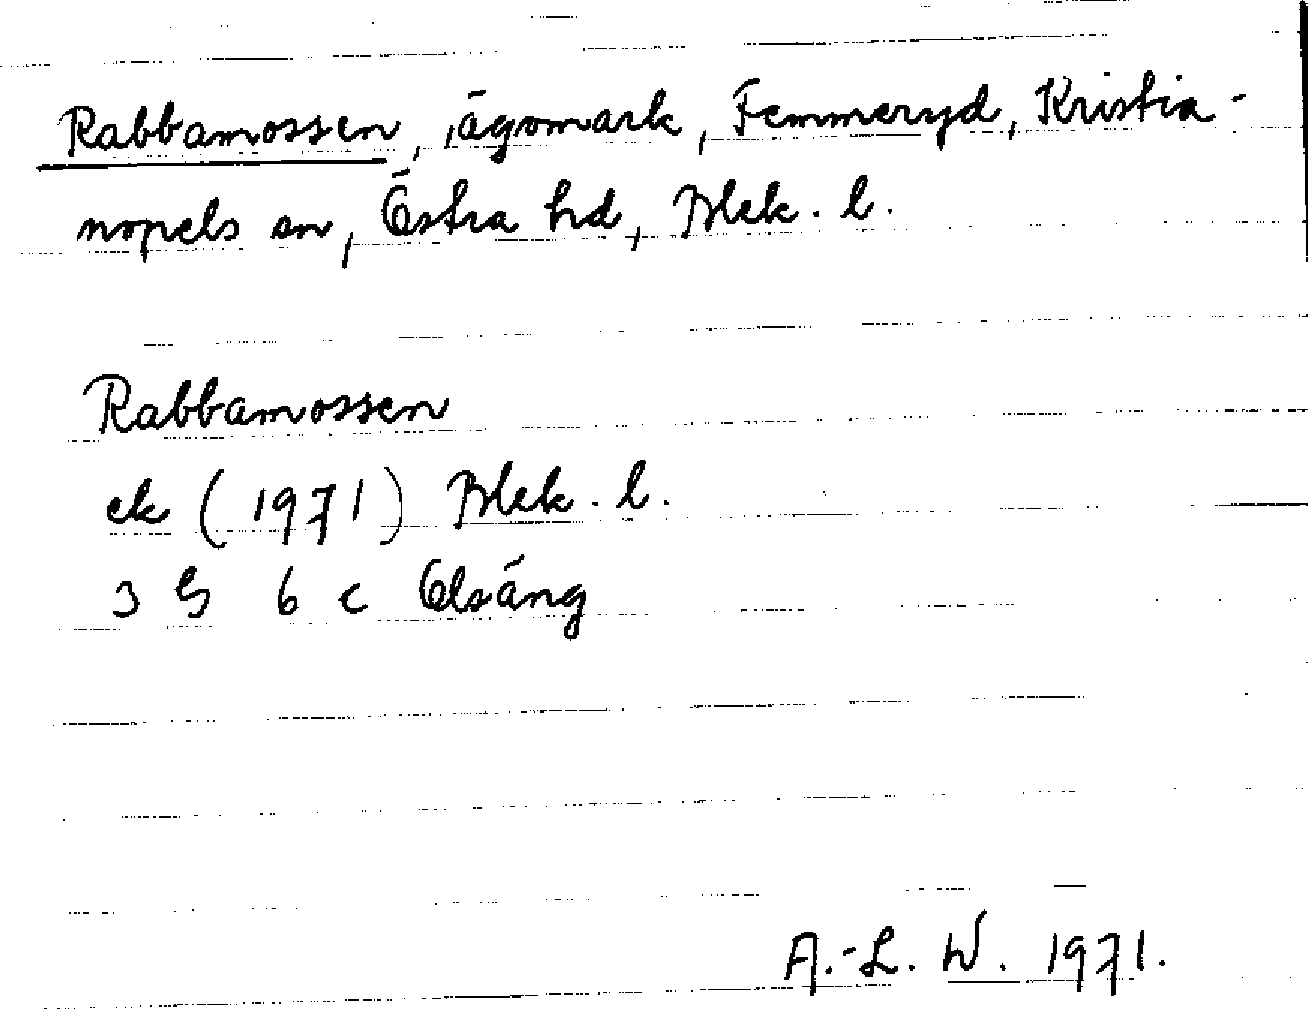 Rabbamossen, ägomark, Femmeryd, Kristia-
nopels sn, Östra hd, Blek. l.
Rabbamossen
ek (1971) Blek. l.
3 G 6 c Olsäng
A.-L. W. 1971.